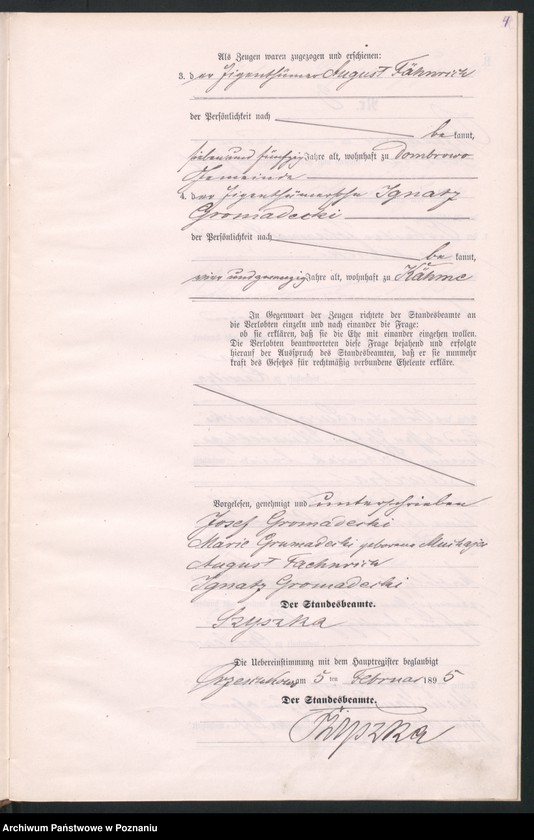 4
Als Zeugen waren zugezogen und erschienen:
3. der Eigenthümer August Fähnrich
der Persönlichkeit nach
bekannt,
sieben und fünfzig Jahre alt, wohnhaft zu Dombrowo
Gemeinde
4. der Eigenthümersohn Ignatz
Gromadecki
der Persönlichkeit nach
bekannt,
vier und zwanzig Jahre alt, wohnhaft zu Kähme
In Gegenwart der Zeugen richtete der Standesbeamte an
die Verlobten einzeln und nach einander die Frage:
ob sie erklären, daß sie die Ehe mit einander eingehen wollen.
Die Verlobten beantworteten diese Frage bejahend und erfolgte
hierauf der Ausspruch des Standesbeamten, daß er sie nunmehr
kraft des Gesetzes für rechtmäßig verbundene Eheleute erkläre.
Vorgelesen, genehmigt und unterschrieben
Josef Gromadecki
Marie Gromadecki geborene
August Faehnrich
Ignatz Gromadecki
Der Standesbeamte.
Szyszka
Die Uebereinstimmung mit dem Hauptregister beglaubigt
am 5 ten Februar 1895
Der Standesbeamte.
Szyszka
Archiwum Państwowe w Poznaniu